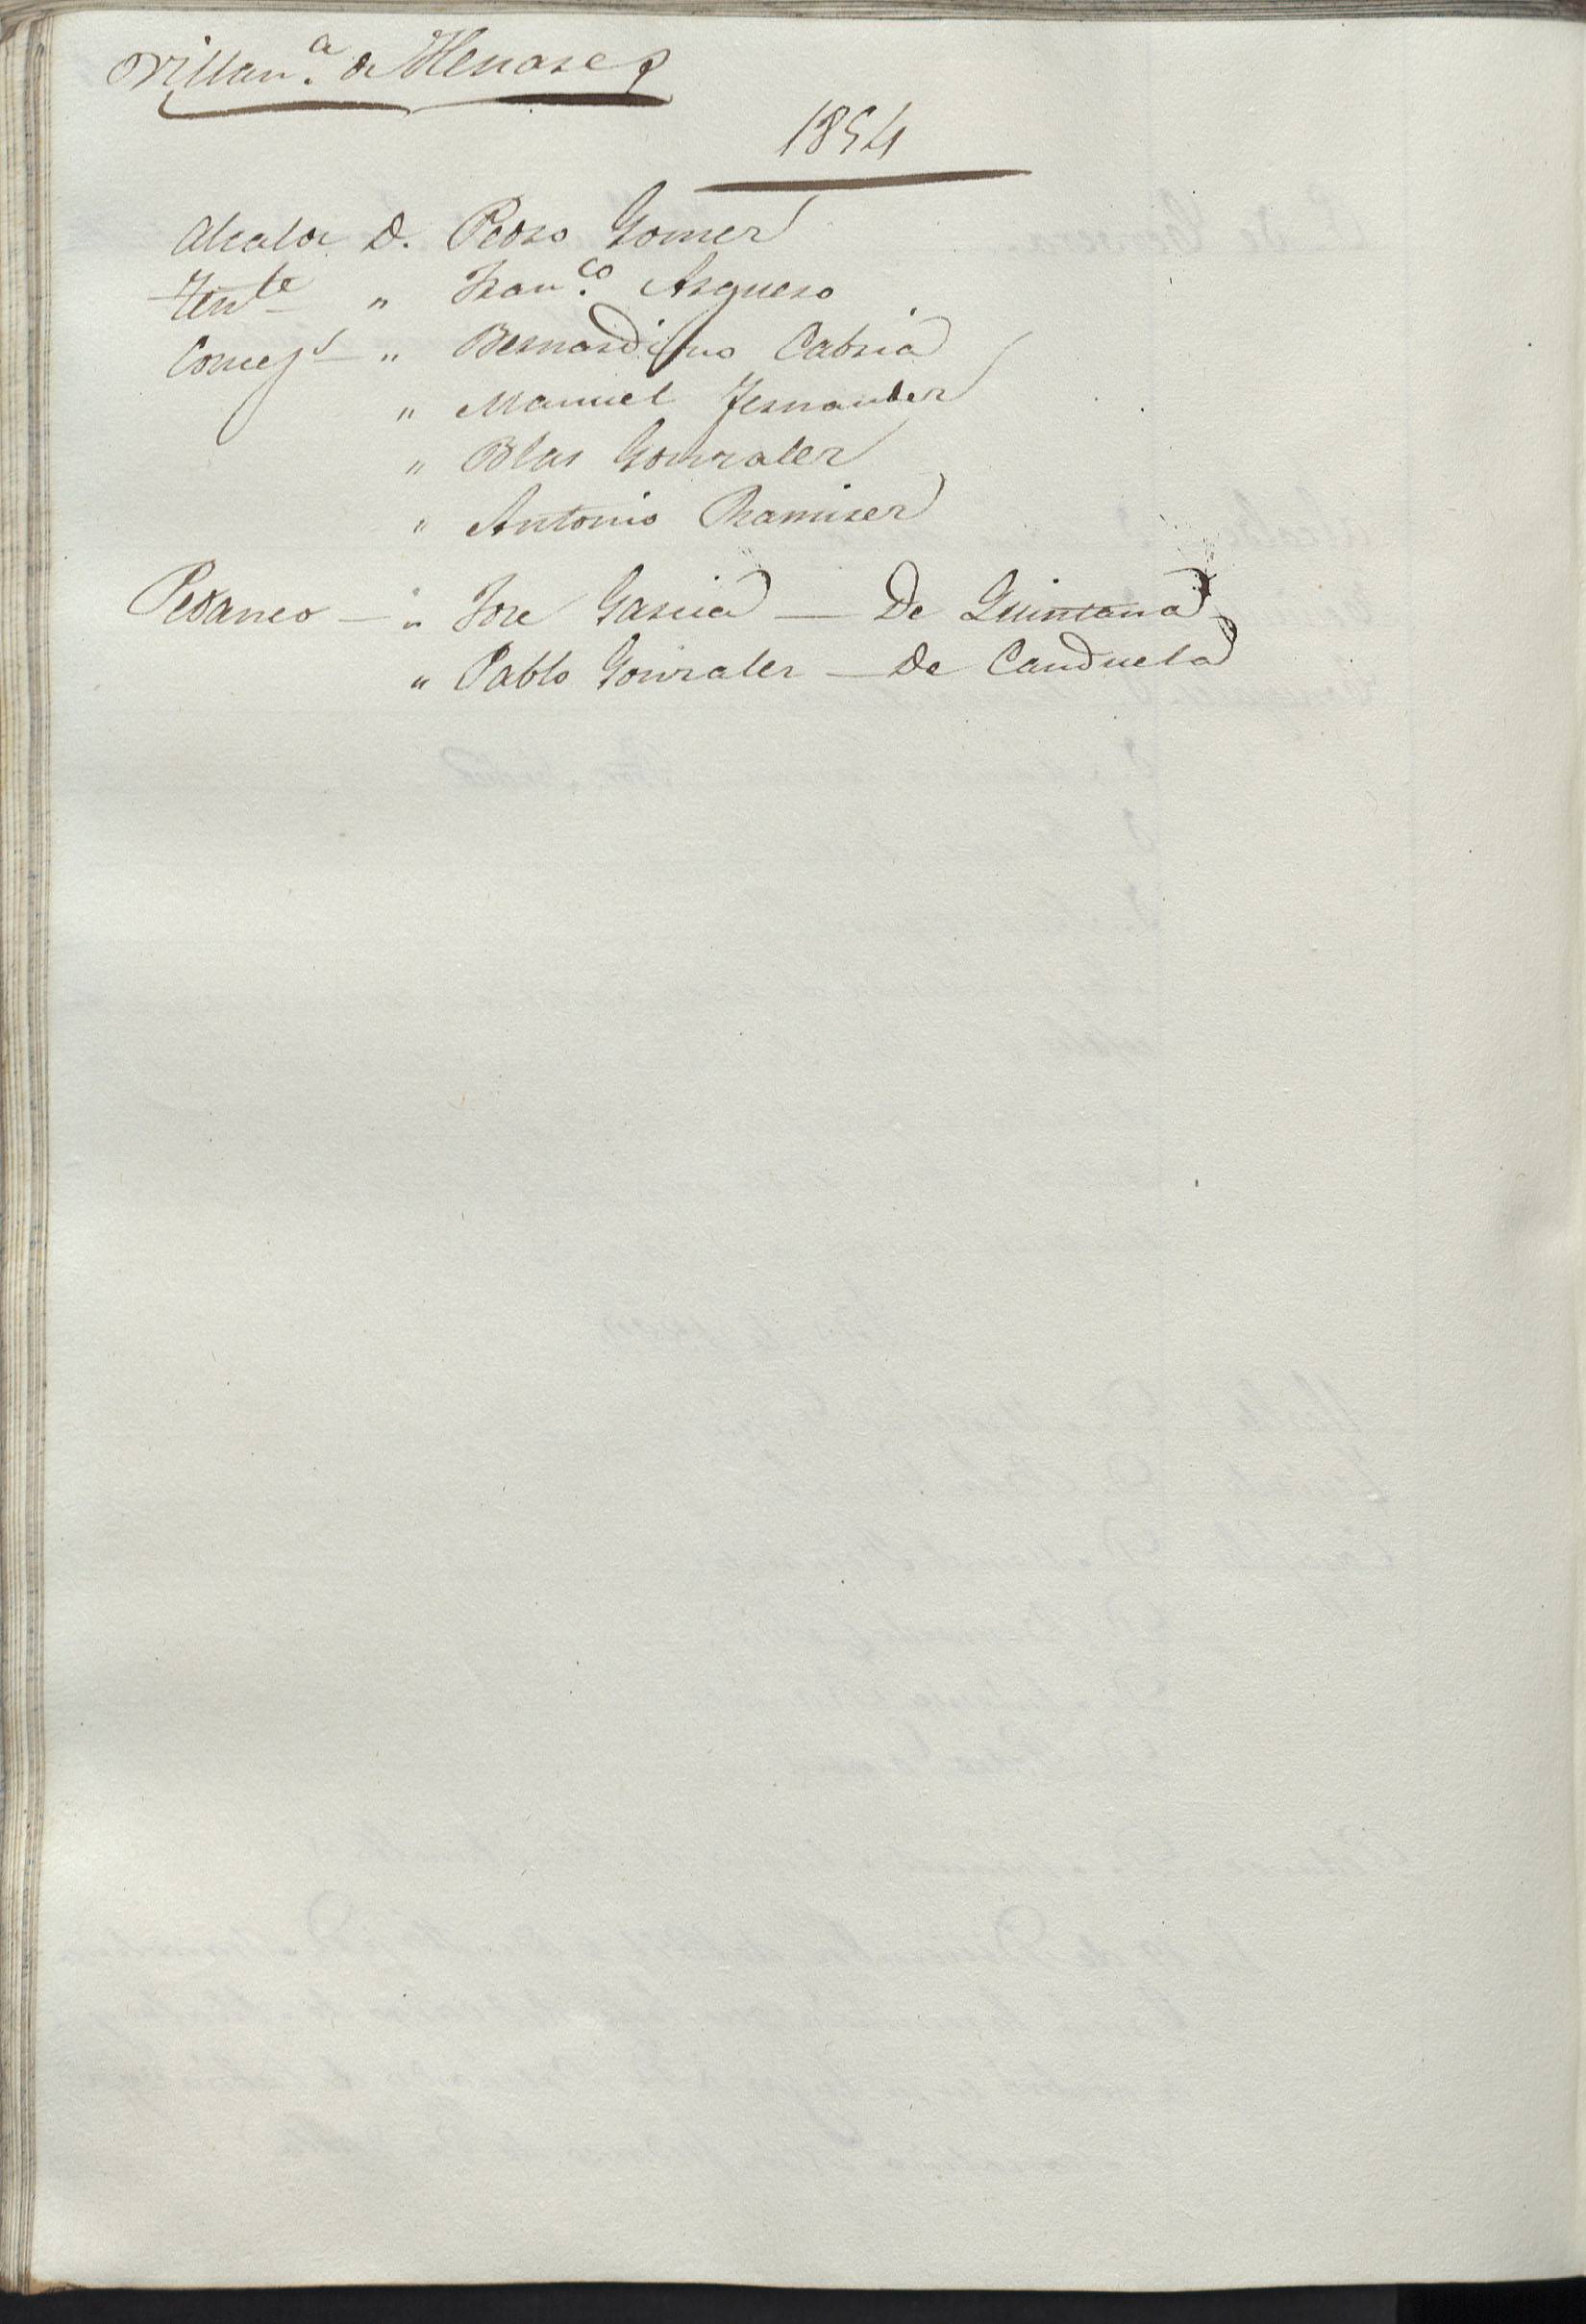 Villan.ª de Henares
1854
Alcalde D. Pedro Gomez
Tente " Franco. Argueso
Concejs " Bernardino Cabria
" Manuel Fernandez
" Blas Gonzalez
" Antonio Ramirez
Pedaneo — " Jose Garcia — De Quintana
" Pablo Gonzalez — De Canduela